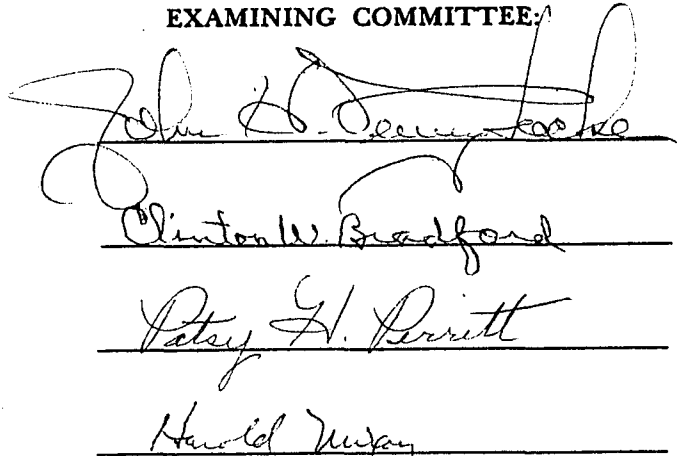 EXAMINING COMMITTEE:
John H. Pennybacker
Clinton W. Bradford
Patsy H. Perritt
Harold Mixon